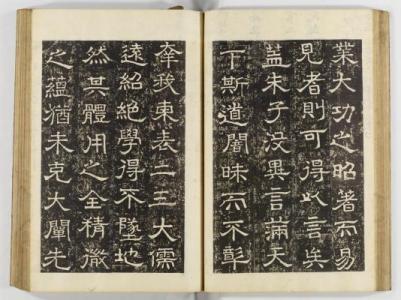 業大功之昭著而易
見者則可得以言矣
蓋朱子没異言滿天
下斯道闇昧而不彰
幸我東表二三大儒
遠紹絶學得不墜地
然其體用之全精微
之蘊猶未克大闡先